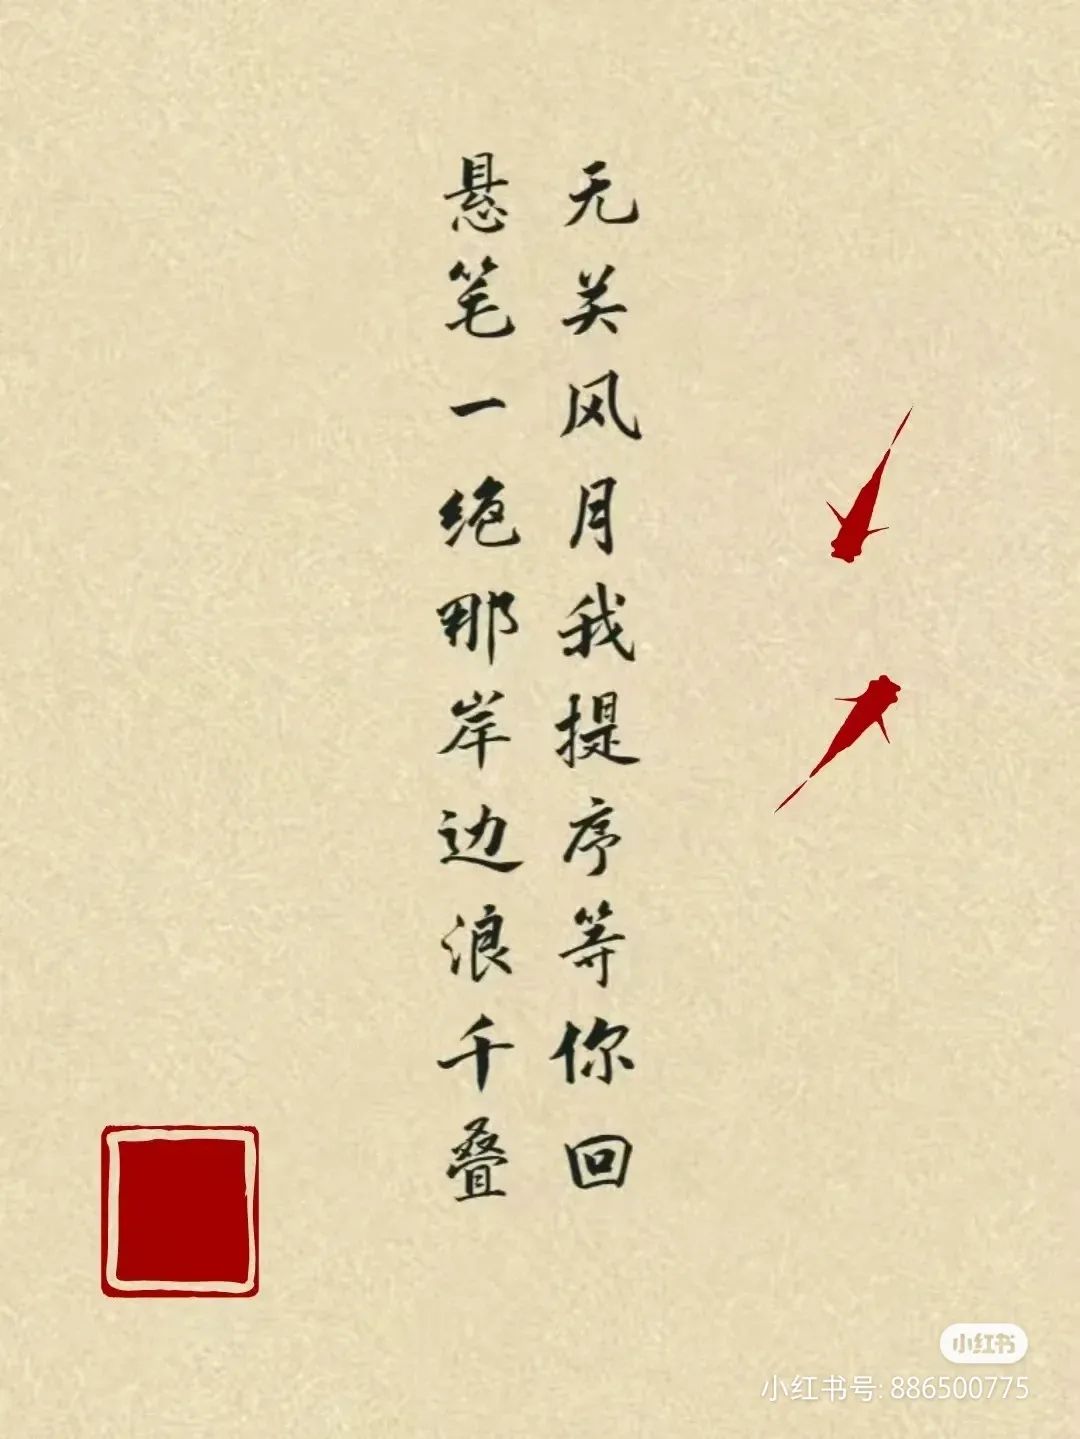 无关风月我提序等你回
悬笔一绝那岸边浪千叠
小红书
小红书号: 886500775